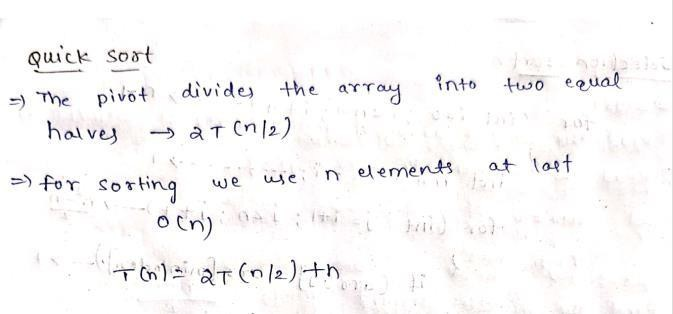 Quick sort
=) The pivot divides the array into two equal
halves → 2T(n/2)
=) for sorting we use n elements at last
O(n)
T(n) = 2T(n/2)+n